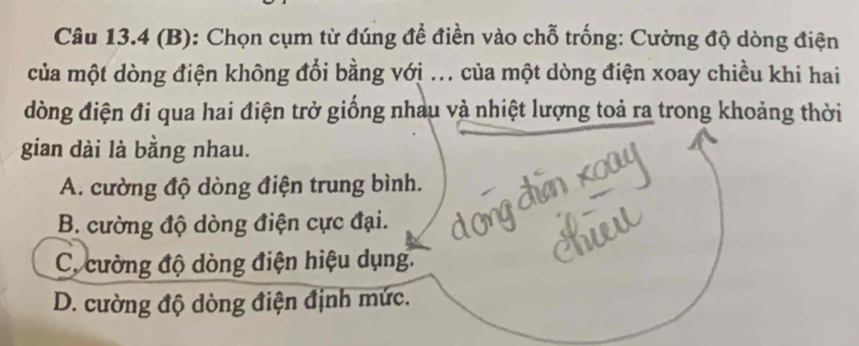 Câu 13.4 (B): Chọn cụm từ đúng để điền vào chỗ trống: Cường độ dòng điện
của một dòng điện không đổi bằng với ... của một dòng điện xoay chiều khi hai
dòng điện đi qua hai điện trở giống nhau và nhiệt lượng toả ra trong khoảng thời
gian dài là bằng nhau.
A. cường độ dòng điện trung bình.
B. cường độ dòng điện cực đại.
C. cường độ dòng điện hiệu dụng.
D. cường độ dòng điện định mức.
dòng điện xoay
chiều